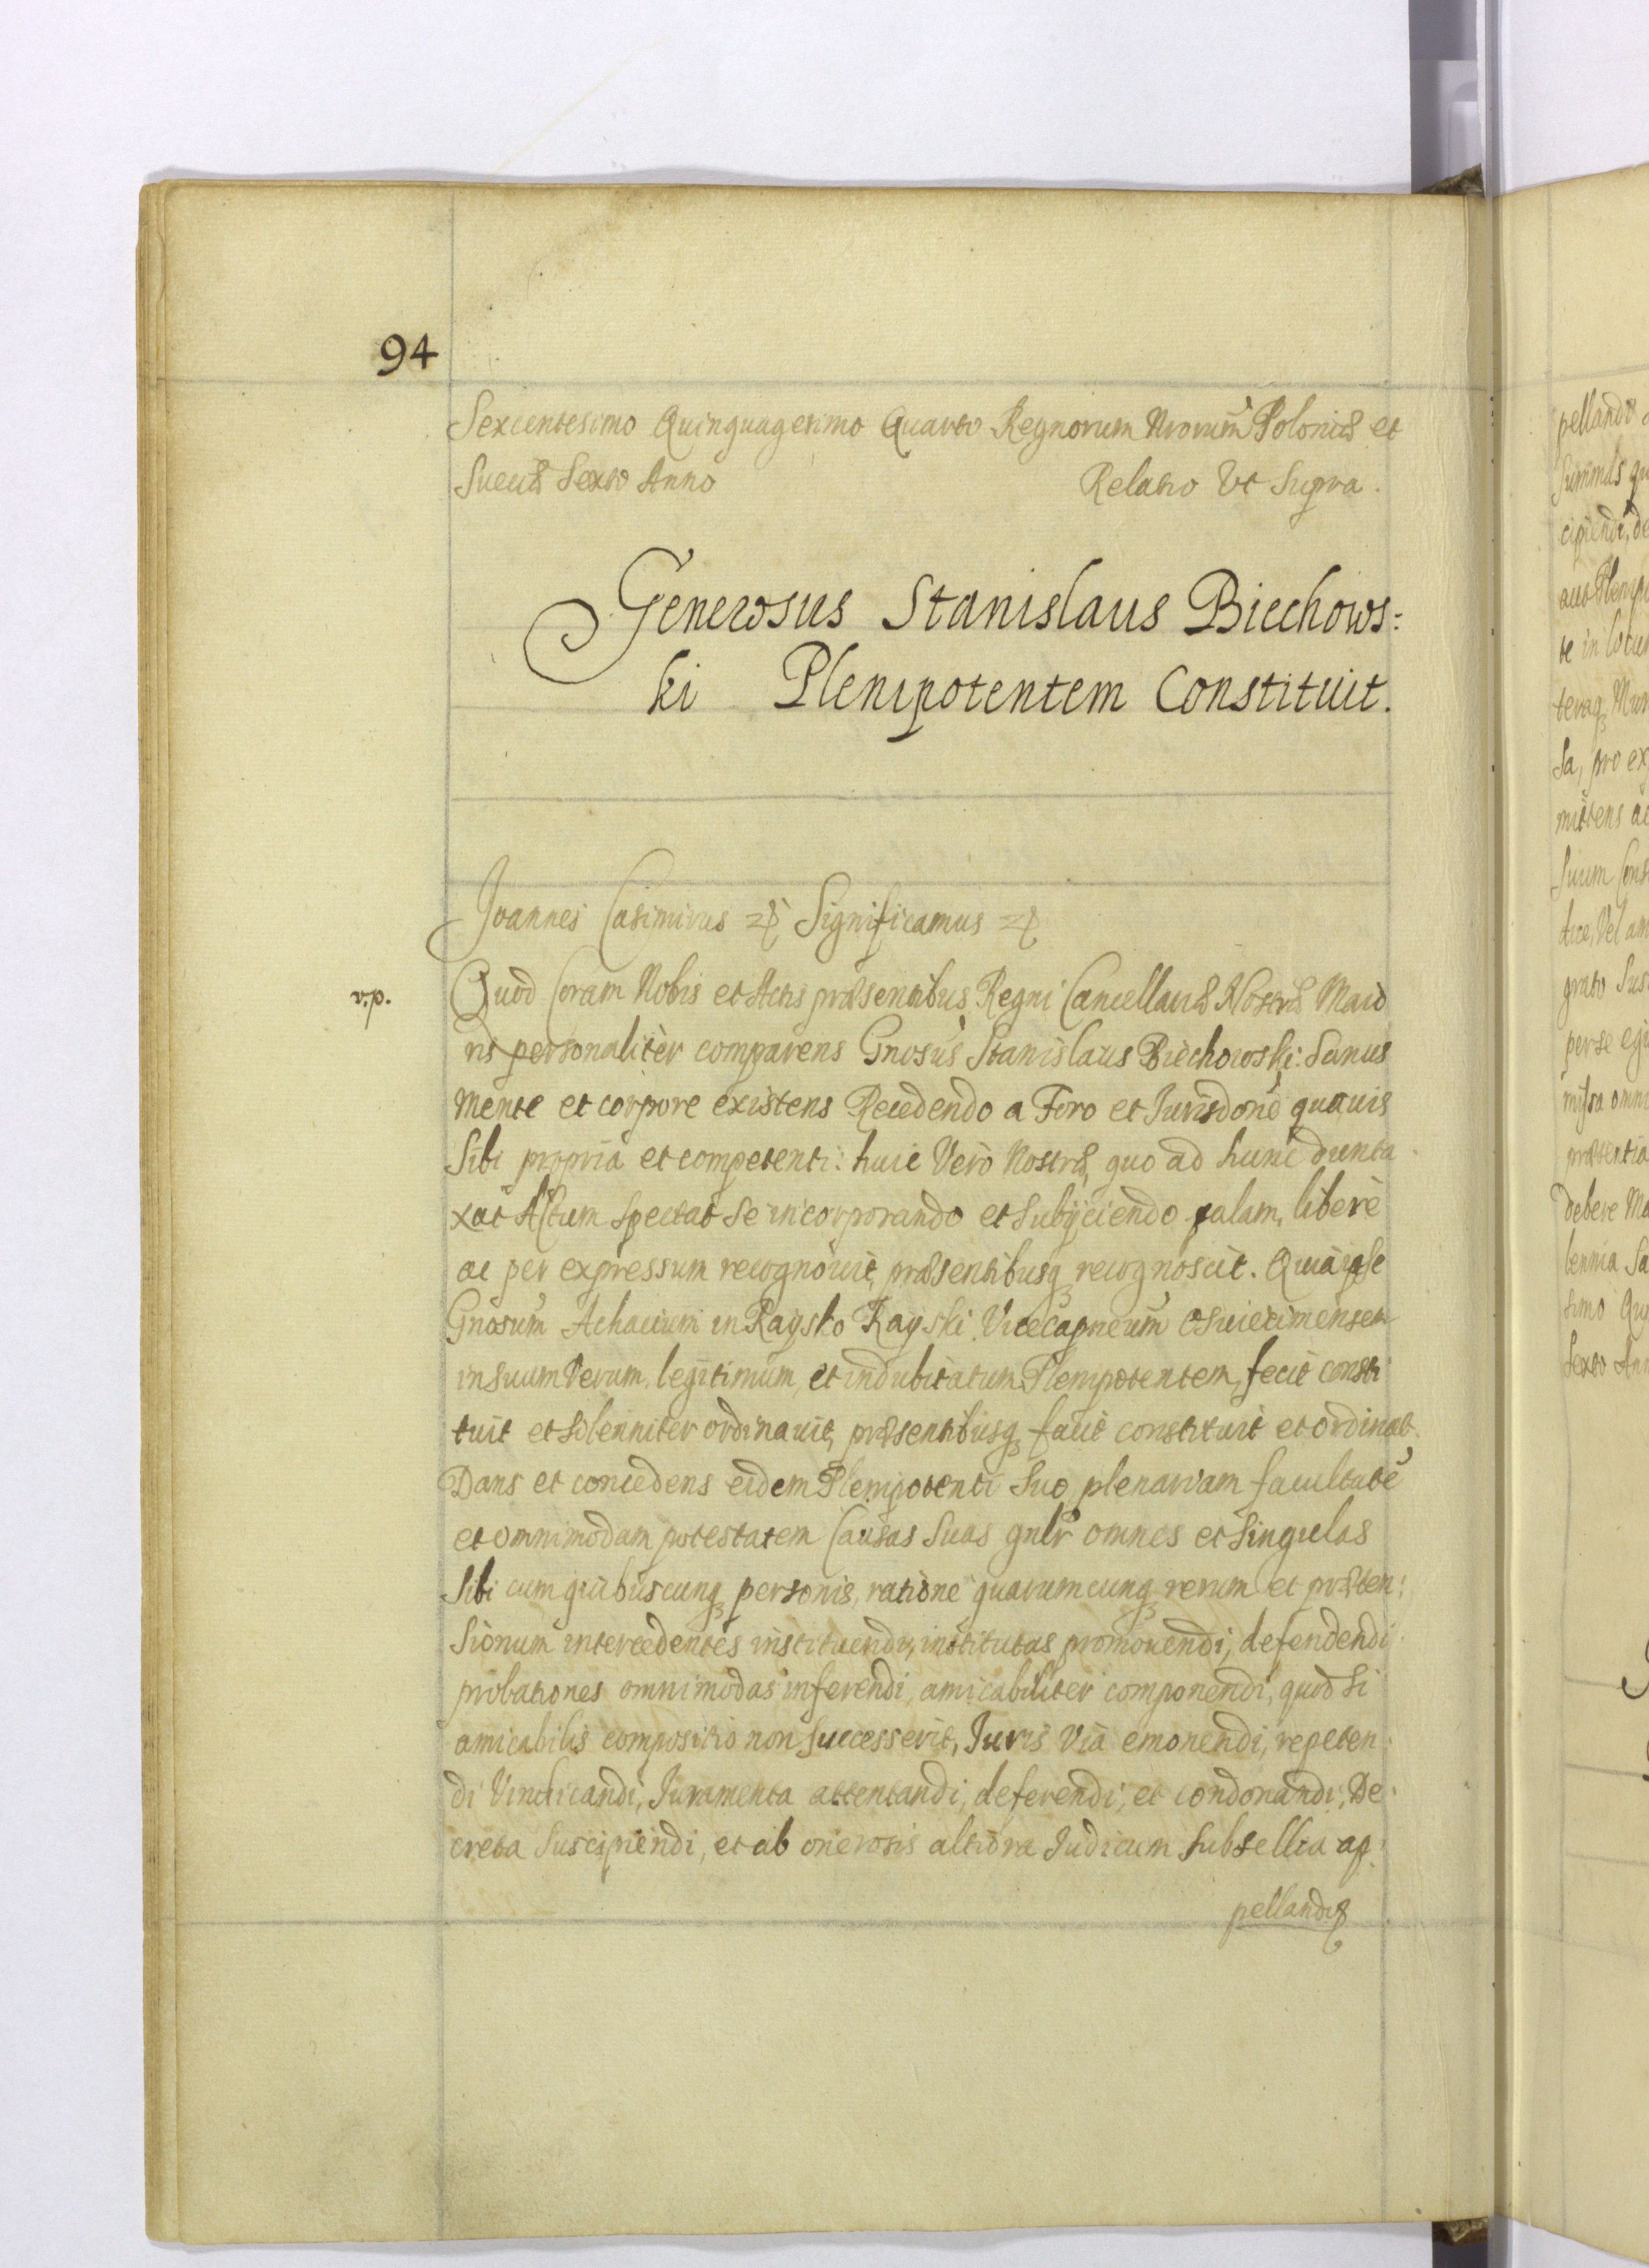 94
Sexcentesimo Quinquagesimo Quarto Regnorum Nrorum Poloniæ et
Sueciæ Sexto Anno Relatio Vt Supra.
Generosus Stanislaus Biechows:
ki Plenipotentem Constituit.
Joannes Casimirus Significamus
v.p.
Quod Coram Nobis et Actis præsentibus Regni Cancellariæ Nostræ Maio
ris personalitèr comparens Gnosus Stanislaus Biechowski: Sanus
mente et corpore existens Recedendo a Foro et Jurisdone quauis
Sibi propriâ et competenti: huic Verò Nostræ, quo ad hunc dunta
xat Actum Spectat Se incorporando et Subijciendo palam, liberè
ac per expressum recognouit, præsentibusq recognoscit. Quia ipse
Gnosum Achacium in Raysko Rayski Vicecapneum Osuiecimensem
in suum Verum, legitimum, et indubitatum Plenipotentem, fecit consti
tuit et Solenniter ordinauit, præsentibusq facit constituit et ordinat.
Dans et concedens eidem Plenipotenti Suo plenariam facultatē
et omnimodam potestatem Causas Suas gnlr omnes et Singulas
Sibi cum quibuscunq personis, ratione quarumcunq rerum et præten:
Sionum intercedentes instituendi, institutas promouendi, defendendi
probationes omnimodas inferendi, amicabiliter componendi, quod Si
amicabilis compositio non Successerit, Juris Via emonendi, repeten
di Vindicandi, Juramenta attentandi, deferendi, et condonandi, De
creta Suscipiendi, et ab onerosis altiora Judicum Subsellia ap
pellandi
pellandi
Summas